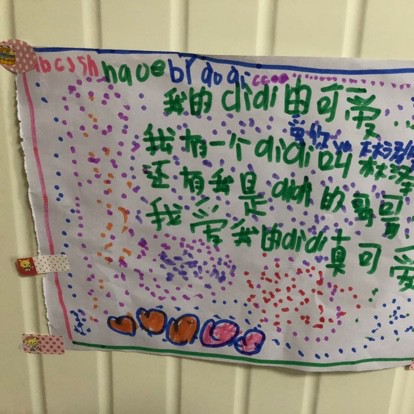 abcssh naoe brdodi
我的didi的可爱...
我有一个didi叫
还有我是didi的
我爱我的didi真可爱